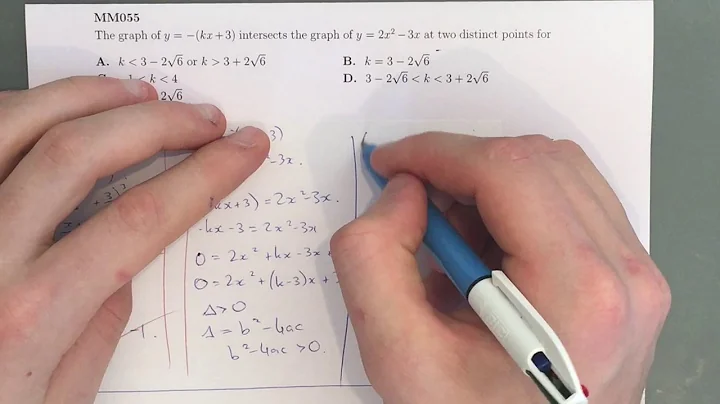 MM055
The graph of y = −(kx + 3) intersects the graph of y = 2x² − 3x at two distinct points for
A. k < 3 − 2√6 or k > 3 + 2√6
B. k = 3 − 2√6
< k < 4
D. 3 − 2√6 < k < 3 + 2√6
2√6
3)
-3x.
kx+3) = 2x²-3x.
-kx-3 = 2x²-3x
0 = 2x² + kx - 3x
0 = 2x² + (k-3)x +
Δ>0
Δ = b²-4ac
b²-4ac >0.